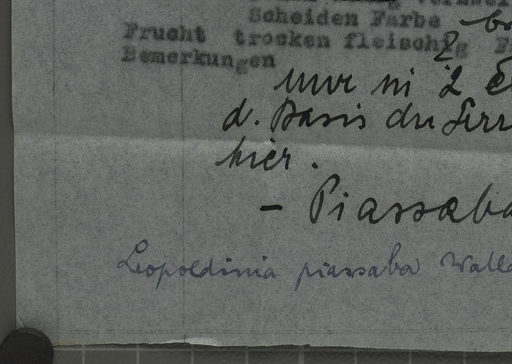 Scheiden Farbe
Frucht trocken fleischig
Bemerkungen
nur in 2
d. Basis der
hier.
- Piassaba
Leopoldinia piassaba Walla